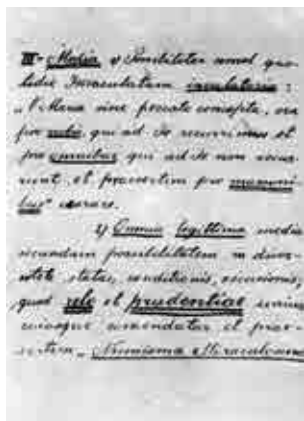 III - Media 1) Possibiliter semel quo-
tidie Immaculatam
"O Maria sine peccato concepta, ora
pro nobis, qui ad te recurrimus et
pro omnibus qui ad te non recur-
runt, et praesertim pro massoni-
bus"
2) Omnia legittima media
secundum possibilitatem in diver-
sitate status, conditionis, occasionis,
quod zelo et prudentiae unius
cuiusque commendatur et prae-
sertim Numisma Miraculosum